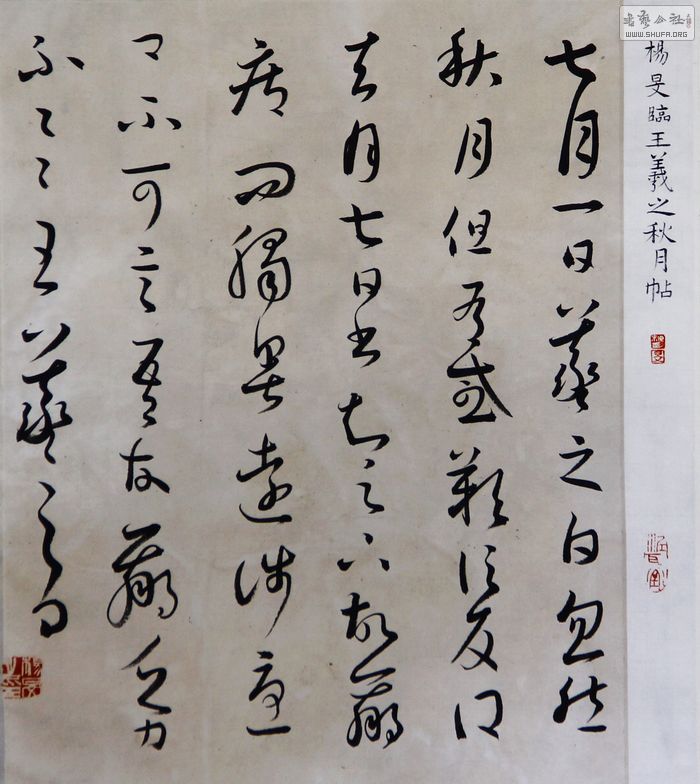 書藝公社
WWW.SHUFA.ORG
楊旻臨王羲之秋月帖
七月一日羲之白忽然
秋月但有感歎信反得
去月七日書知足下故羸
疾問觸暑遠涉憂
卿不可言吾故羸乏力
不一一王羲之白